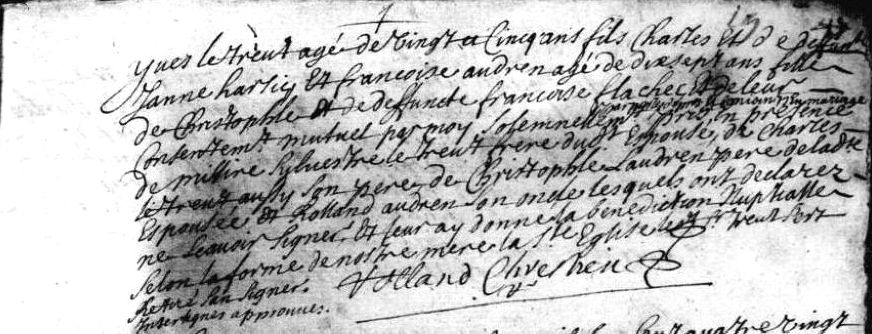 yves le treut agé de vingt et cinq ans fils Charles et de deffunte
Janne et francoise audren agé de dixsept ans fille
de Christophle et de deffuncte francoise flachec et de leur
Consentemt mutuel par moy solemnellemt pris en presence
conjoint en mariage
de missire sylvestre le treut frere dudt Espousé, de Charles
le treut aussy son pere, de Christophle Laudren pere de ladte
Espousée et Rolland audren son oncle lesquels ont declarez
ne scavoir signer, Et leur ay donné la bénédiction Nuptialle
selon la forme de nostre mere la ste Eglise le dt sr treut sest
Retiré san signer.
Interlignes approuvés.
vingt